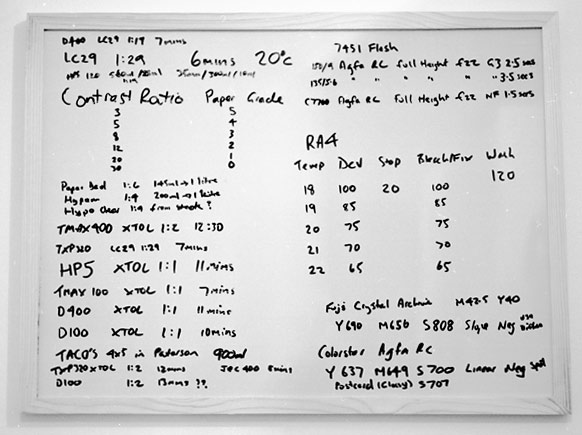 D400 LC29 1:19 7mins
LC29 1:29 6mins 20°c
HP5 120 560ml/20ml 25mm/300ml/10ml
1:29
Contrast Ratio Paper Grade
3 5
5 4
8 3
12 2
20 1
30 0
Paper Dev 1:6 145ml → 1 litre
Hypam 1:4 200ml → 1 litre
Hypo Clear 1:4 from stock?
TMAX400 XTOL 1:2 12:30
TXP320 LC29 1:29 7mins
HP5 XTOL 1:1 11mins
TMAX 100 XTOL 1:1 7mins
D400 XTOL 1:1 11mins
D100 XTOL 1:1 10mins
TACO'S 4x5 in Paterson 900ml
TXP320 XTOL 1:2 12mins 400 8mins
D100 1:2 13mins ??
7451 Flash
150/9 Agfa RC full Height f22 G3 2.5 secs
135/5.6 " " " " " 3.5 secs
C7700 Agfa RC Full Height f22 NF 1.5 secs
RA4
Temp Dev Stop Bleach/Fix Wash
18 100 20 100 120
19 85 85
20 75 75
21 70 70
22 65 65
Fuji Crystal Archive M42.5 Y40
Y690 M656 S808 Slope Neg
Colorstar Agfa RC
Y 637 M649 S700 Linear Neg Spot
Postcard (Glossy) S707